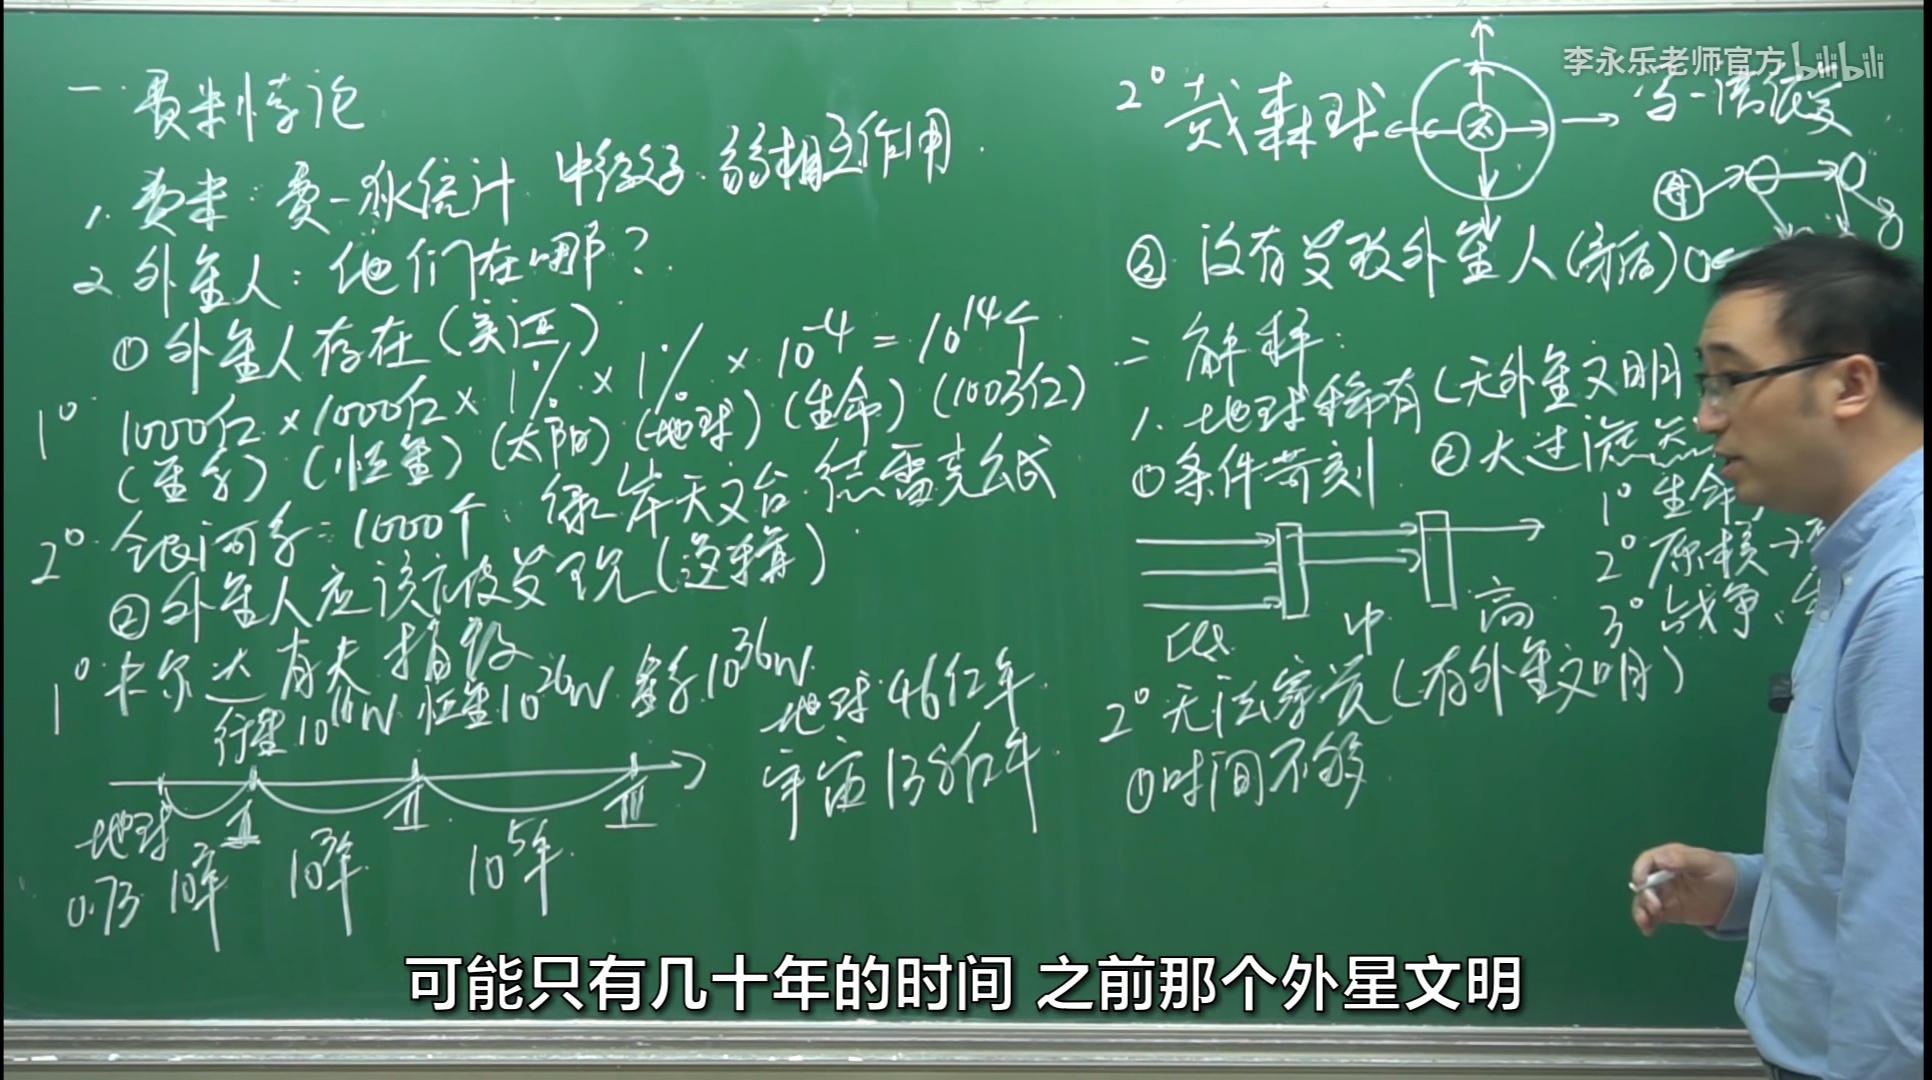 一. 费米悖论
1. 费米: 费-狄统计 中微子. 弱相互作用.
2. 外星人: 他们在哪?
① 外星人存在 (实证)
1° 1000亿 × 1000亿 × 1% × 1% × 10⁻⁴ = 10¹⁴个
(星系) (恒星) (太阳) (地球) (生命) (100万亿)
2° 银河系: 1000个. 绿岸天文台. 德雷克公式
② 外星人应该被发现 (逻辑)
1° 卡尔达肖夫指数
行星10¹⁶W 恒星10²⁶W 星系10³⁶W
地球 46亿年
宇宙 138亿年
地球 I II III
0.73 10²年 10³年 10⁵年
2° 戴森球 太
母
③ 没有发现外星人
二 解释:
1. 地球稀有 (无外星文明)
① 条件苛刻 ② 大过滤
1° 生命
2° 原核→
3° 战争、
低 中 高
2° 无法 (有外星文明)
① 时间不够
李永乐老师官方 bilibili
可能只有几十年的时间 之前那个外星文明